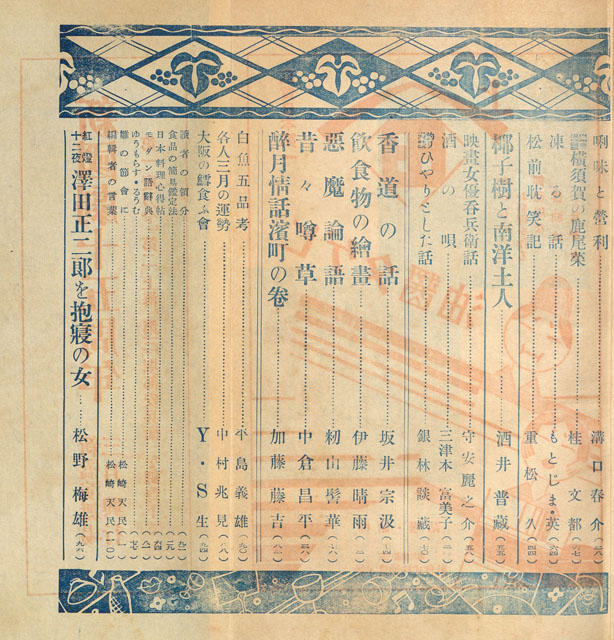 唎味と營利……溝口春介
横須賀の鹿尾菜……桂文都(六七)
凍る話……もとじま・英(六四)
松前耽笑記……重松久(四四)
椰子樹と南洋土人……酒井普藏(五五)
映畫女優呑兵衛話……守安麗之介(五八)
酒の唄……三津木富美子
ひやりとした話……銀林談藏
香道の話……坂井宗汲
飲食物の繪畫……伊藤晴雨
惡魔論語……籾山髻華
昔々噂草……中倉昌平
醉月情話濱町の卷……加藤藤吉
白魚五品考……平島義雄
各人三月の運勢……中村兆見
大阪の鱈食ふ會……Y・S生
讀者の領分
食品の簡易鑑定法
日本料理心得帖
モダン語辭典
ゆうもらす・るうむ
雛の節會に……松崎天民(一)
編輯者の言葉……松崎天民
紅燈十二夜 澤田正二郎を抱寢の女……松野梅雄(九六)